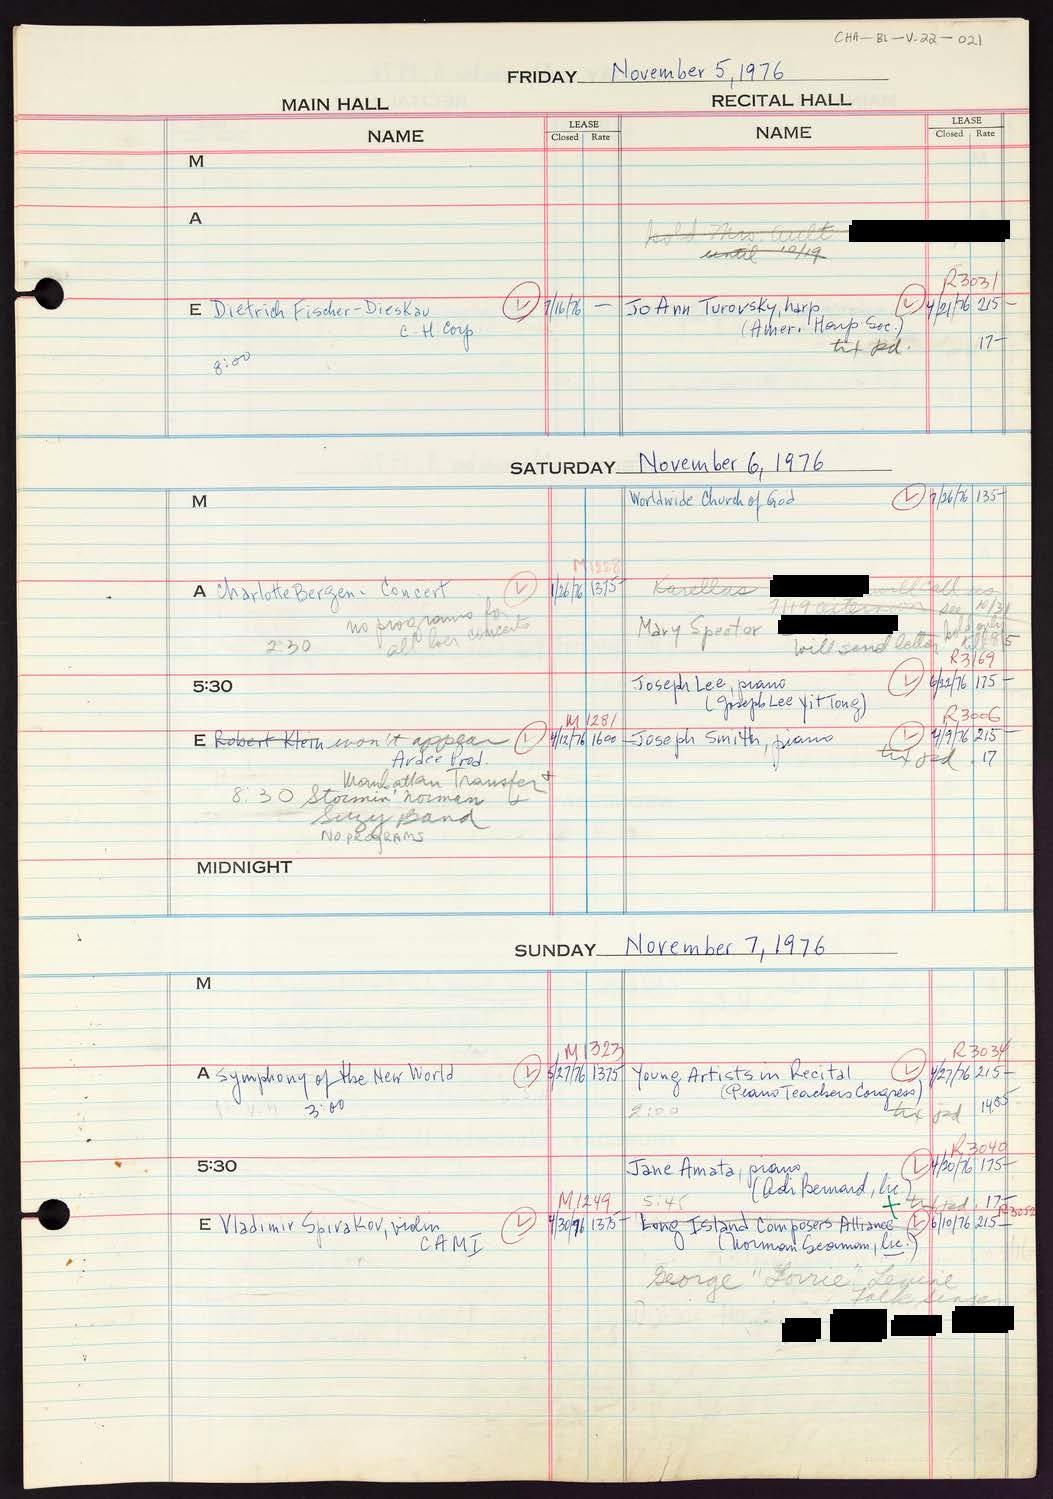 CHA-BL-V-22-021
FRIDAY November 5, 1976
MAIN HALL
RECITAL HALL
NAME
LEASE
Closed Rate
NAME
LEASE
Closed Rate
M
A
hold Mrs. Ault
until 10/19
R3031
E Dietrich Fischer-Dieskau 7/16/76 —
C-H Corp
8:00
Jo Ann Turovsky, harp 4/21/76 215-
(Amer. Harp Soc.)
tix pd. 17-
SATURDAY November 6, 1976
M
Worldwide Church of God 7/26/76 135-
M1228
A Charlotte Bergen - Concert 1/26/76 1375-
no programs for
all her concerts
2:30
Karellas will call us
7/19 afternoon see 10/31
Mary Spector hold only
will send letter till 8/5
R3169
5:30
Joseph Lee, piano 6/22/76 175-
(Joseph Lee Yit Tong)
M1281
R3006
E Robert Klein won't appear 4/12/76 1600-
Ardee Prod.
Manhattan Transfer +
8:30 Stormin' Norman +
Suzy Band
NO PROGRAMS
Joseph Smith, piano 4/9/76 215-
tix pd. 17
MIDNIGHT
SUNDAY November 7, 1976
M
M1323
R3034
A Symphony of the New World 5/27/76 1375
3:00
Young Artists in Recital 4/27/76 215-
(Piano Teachers Congress)
2:00 tix pd 1485
R3040
5:30
Jane Amata, piano 4/30/76 175-
(Adi Bernard, lic.)
5:45 tix pd. 17-
M1249
R3052
E Vladimir Spivakov, violin 4/30/76 1375-
CAMI
Long Island Composers Alliance 6/10/76 215-
(Norman Seaman, lic.)
George "Lovrie" Levine
Folk Singer